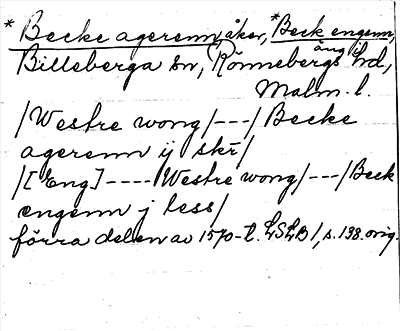 * Becke agerenn, åker, * Beck engenn, äng
Billeberga sn, Rönnebergs hd,
Malm. l.
/Westre wong/---/Becke
agerenn ij skr/
/[Eng]----Westre wong/---/Beck
engenn j less/
förra delen av 1570-t. LSLB 1, s. 198. orig.